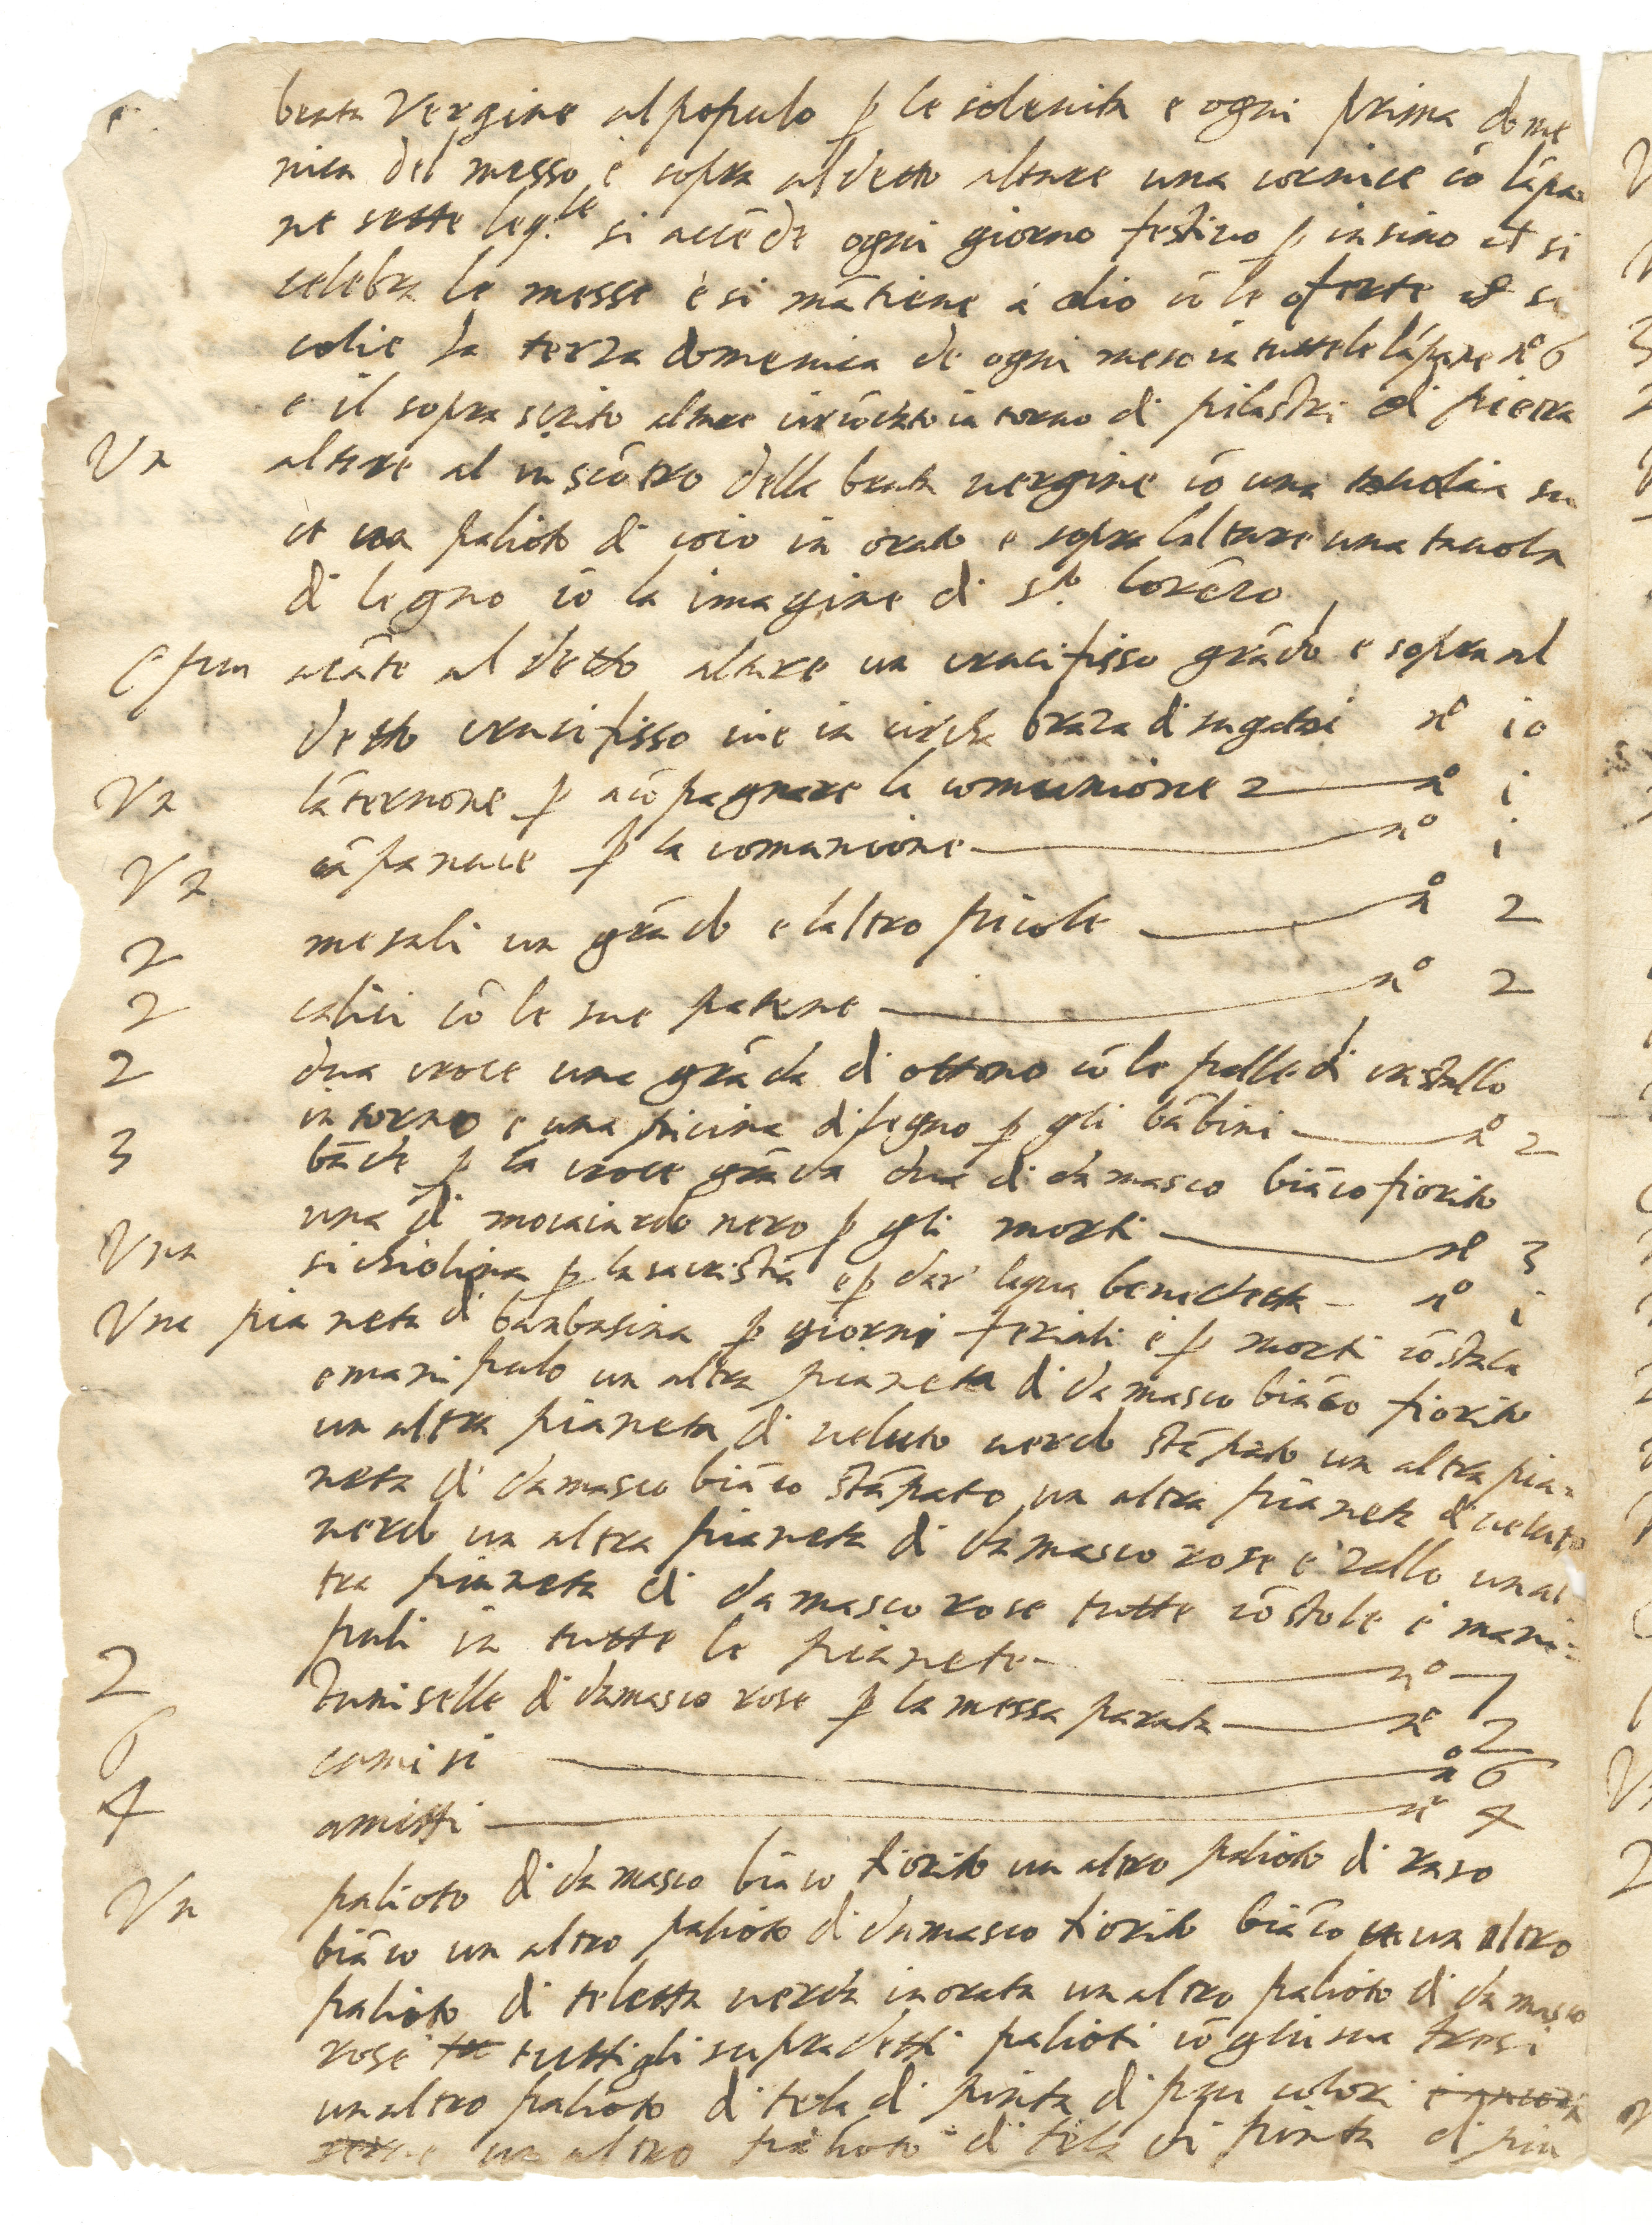 beata Vergine al populo p le solenita e ogni prima dome
nica del messo e sopra al detto altare una cornice cō lāpa
ne sette leq.le si accēde ogni giorno festivo p insino et si
celebra le messe è si mātiene à olio cō le oferte et si
colie la terza domenica de ogni mese in tutte le lāpane no 6
e il sopra scrito altare circōdato in torno di pilastri di pietra
Vn altare al in scōtro della beata vergine cō una
et un palioto di coio in orato e sopra laltare una tavola
di legno cō la imagine di s.to lorēzo
e piu acāte al detto altare un crucifisso grādo e sopra al
detto crucifisso cie in circha braza di sugatoi no 10
Vn lāternone p acōpagnare la comunione no i
Vn cāpanace p la comunione no i
2 mesali un grādo e laltro picole no 2
2 calici cō le sue patene no 2
2 dua croce una grāda di ottono cō le palle di cristallo
in torno e una picina di legno p gli bābini no 2
3 bāde p la croce grāda due di damasco biāco fiorito
una di mocaiardo nero p gli morti no 3
Vna sichiolina p la sacristia e p dar' laqua benedetta no i
Vna pianeta di banbasina p giorni feriali è p morti cō stola
e manipulo un altra pianeta di damasco biāco fiorito
un altra pianeta di veluto verdo stāpato un altra pia
neta di damasco biāco stāpato un altra pianeta di veluto
verdo un altra pianeta di damasco rose è zallo un al
tra pianeta di damasco rose tutte cō stole è mani
puli in tutte le pianete no 7
2 tuniselle di damasco rose p la messa parata no 2
6 camisi no 6
4 amitti no 4
Vn palioto di damasco biāco fiorito un altro palioto di raso
biāco un altro palioto di damasco fiorito biāco un altro
palioto di teletta verda inorata un altro palioto di damasco
rose tutti gli supra detti palioti cō gli sua
un altro palioto di tela di pinta di piu colori
un altro palioto di tela di pinta di piu